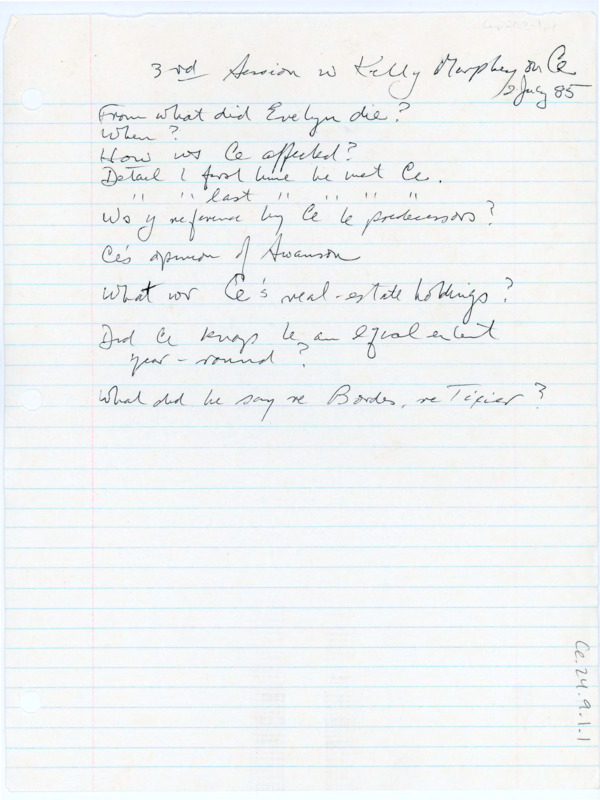 3rd Session w Kelly Murphey on Ce
2 July 85
From what did Evelyn die?
When?
How ws Ce affected?
Detail 1 first time he met Ce.
" " last " " " "
Ws y reference by Ce to predecessors?
Ce's opinion of Swanson
What wr Ce's real-estate holdings?
Did Ce knap to an equal extent
year-round?
What did he say re Bordes, re Tixier?
Ce.24.9.1-1